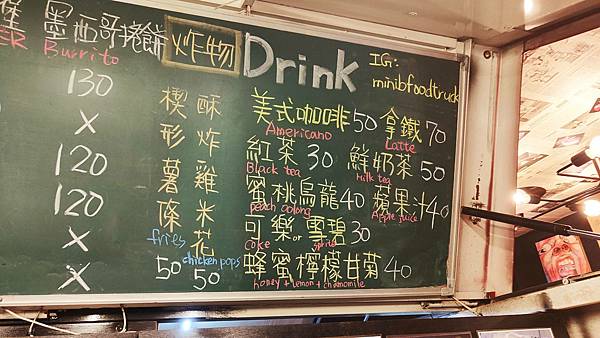 堡 墨西哥捲餅
ER Burrito
130
X
120
120
X
X
炸物
楔形薯條
fries
50
酥炸雞米花
chicken pops
50
Drink
IG:
minibfoodtruck
美式咖啡 50
Americano
拿鐵 70
Latte
紅茶 30
Black tea
鮮奶茶 50
Milk tea
蜜桃烏龍 40
peach oolong
蘋果汁 40
Apple juice
可樂 or 雪碧 30
coke sprite
蜂蜜檸檬甘菊 40
honey + lemon + chamomile